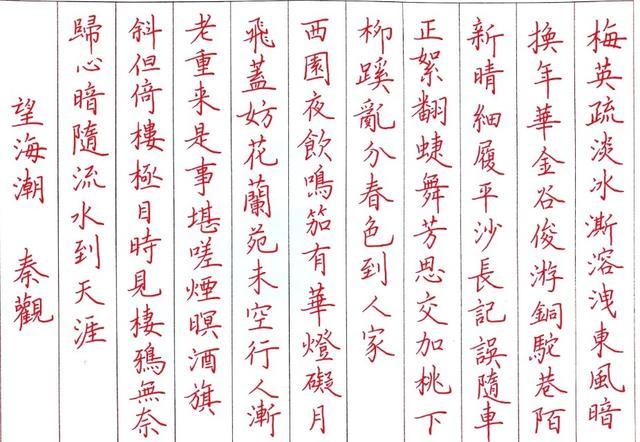 梅英疏淡冰澌溶洩東風暗
換年華金谷俊游銅駝巷陌
新晴細履平沙長記誤隨車
正絮翻蝶舞芳思交加桃下
柳蹊亂分春色到人家
西園夜飲鳴笳有華燈礙月
飛蓋妨花蘭苑未空行人漸
老重来是事堪嗟煙暝酒旗
斜但倚樓極目時見棲鴉無奈
歸心暗隨流水到天涯
望海潮 秦觀